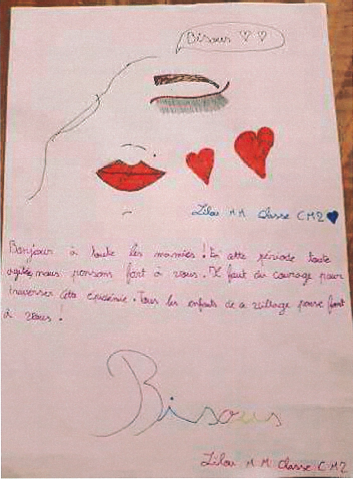 Bisous ♡ ♡
Lilou M M Classe CM2
Bonjour à toute les mamies ! En cette période toute
agitée, nous pensons fort à vous. Il faut du courage pour
traverser cette épidémie. Tous les enfants de ce village pense fort
à vous !
Bisous
Lilou M M Classe CM2